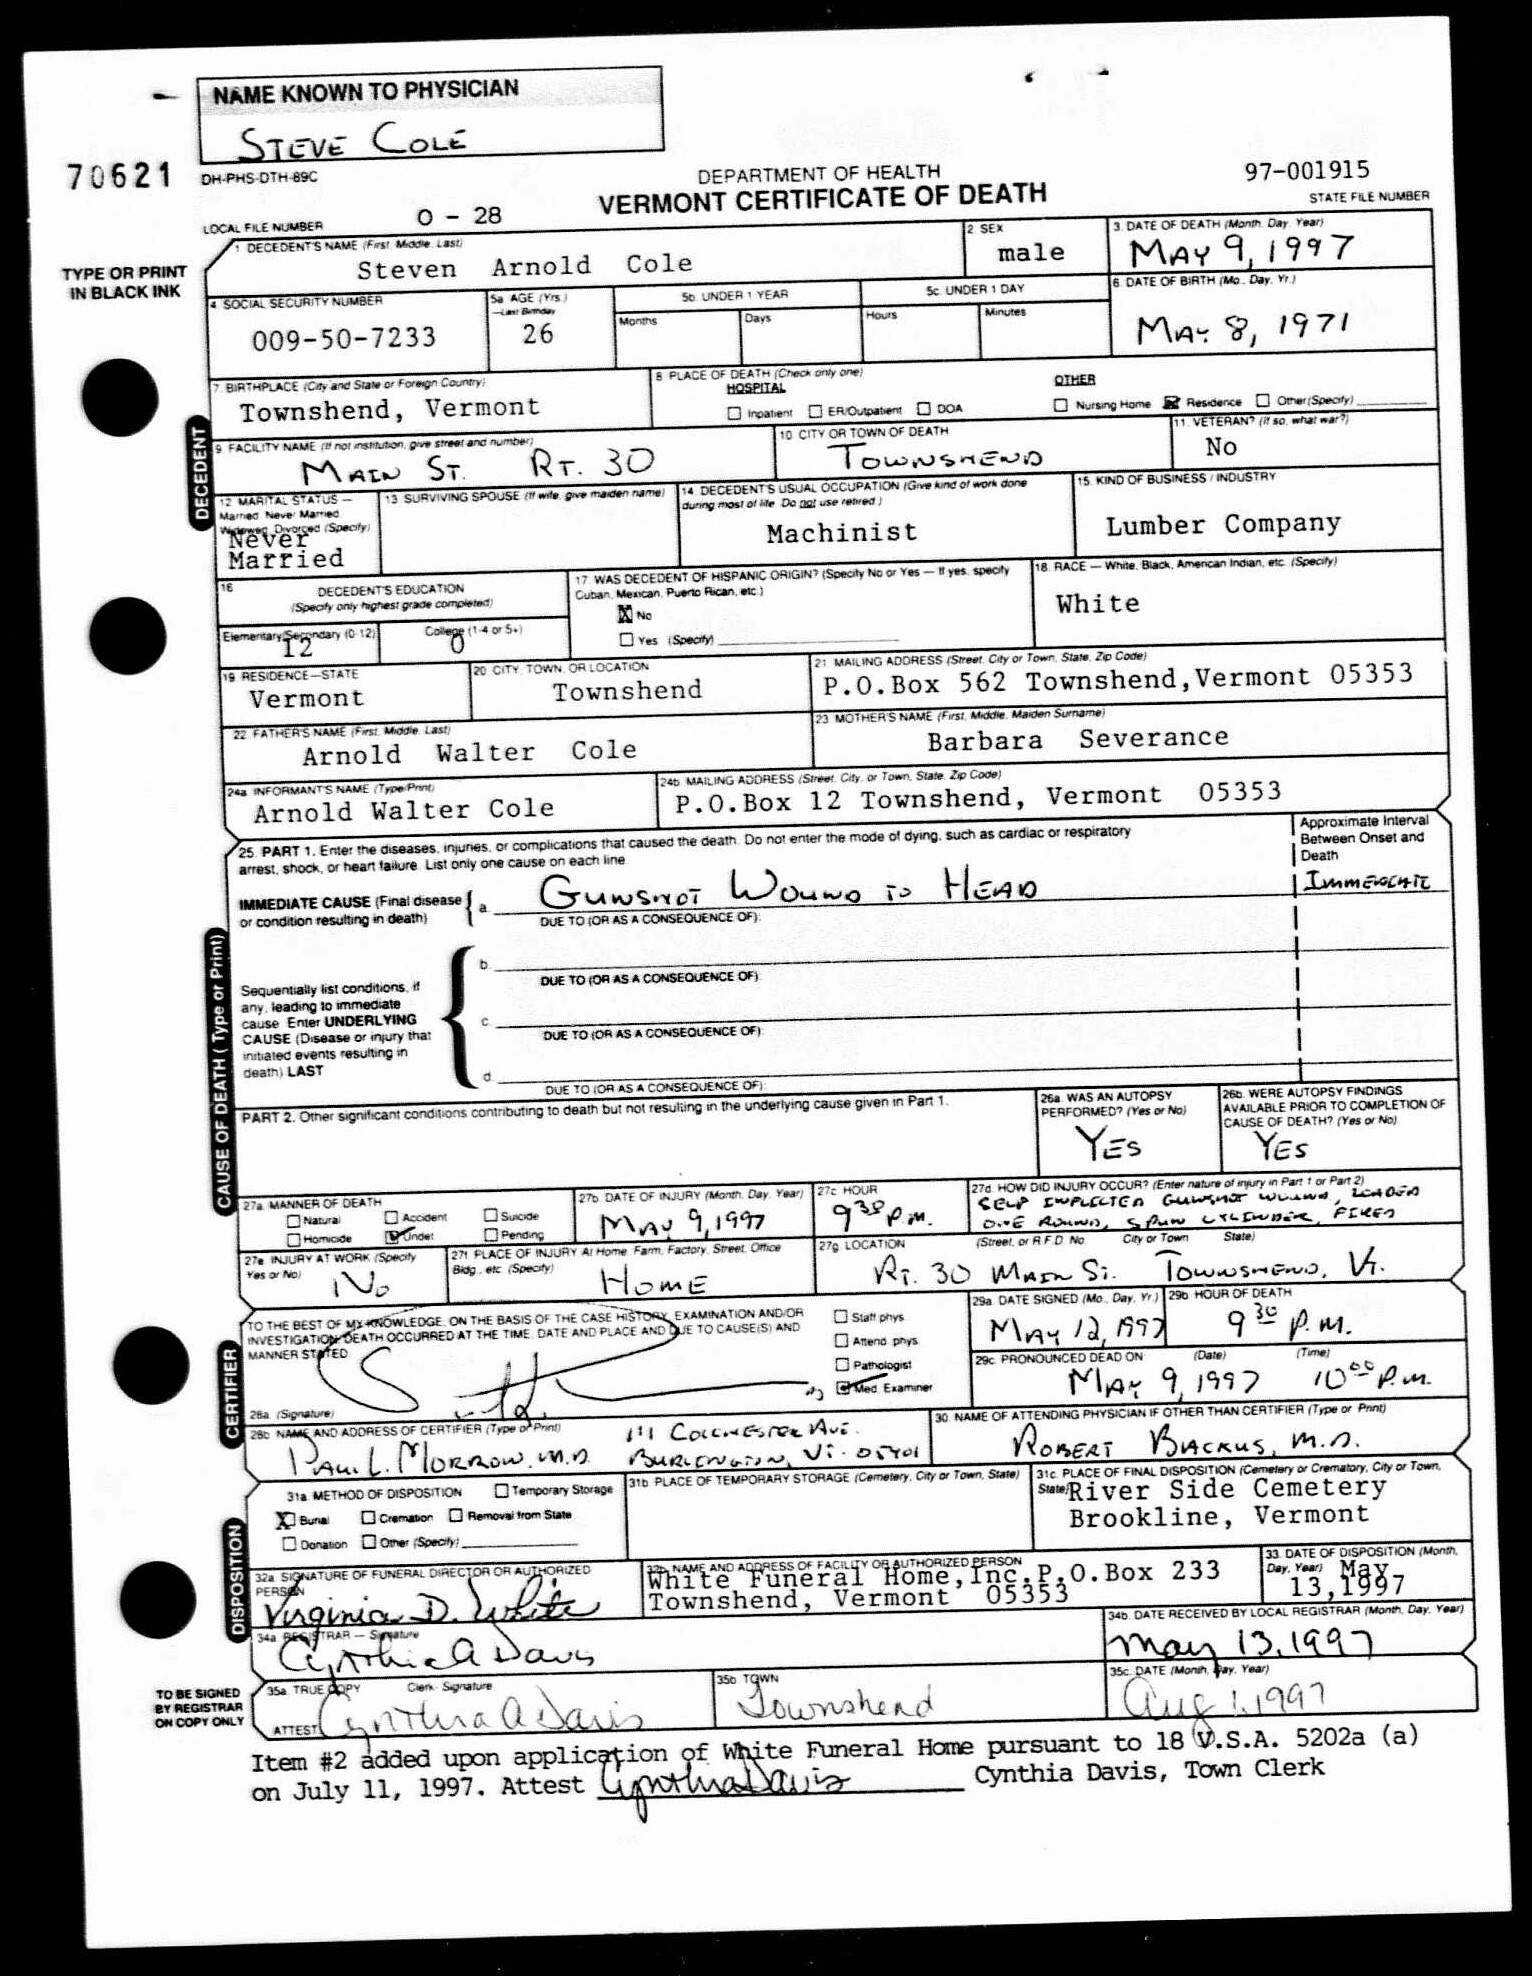 NAME KNOWN TO PHYSICIAN
STEVE COLE
70621
DH-PHS-DTH-89C
DEPARTMENT OF HEALTH
VERMONT CERTIFICATE OF DEATH
97-001915
STATE FILE NUMBER
LOCAL FILE NUMBER O - 28
TYPE OR PRINT
IN BLACK INK
DECEDENT
1 DECEDENT'S NAME (First, Middle, Last)
Steven Arnold Cole
2 SEX
male
3. DATE OF DEATH (Month, Day, Year)
MAY 9, 1997
4. SOCIAL SECURITY NUMBER
009-50-7233
5a AGE (Yrs.)
—Last Birthday
26
5b. UNDER 1 YEAR
Months
Days
5c. UNDER 1 DAY
Hours
Minutes
6. DATE OF BIRTH (Mo., Day, Yr.)
MAY 8, 1971
7. BIRTHPLACE (City and State or Foreign Country)
Townshend, Vermont
8. PLACE OF DEATH (Check only one)
HOSPITAL
Inpatient ER/Outpatient DOA
OTHER
Nursing Home Residence Other (Specify)
9. FACILITY NAME (If not institution, give street and number)
MAIN ST. RT. 30
10. CITY OR TOWN OF DEATH
TOWNSHEND
11. VETERAN? (If so, what war?)
No
12. MARITAL STATUS —
Married, Never Married,
Widowed, Divorced (Specify)
Never
Married
13. SURVIVING SPOUSE (If wife, give maiden name)
14. DECEDENT'S USUAL OCCUPATION (Give kind of work done
during most of life. Do not use retired.)
Machinist
15. KIND OF BUSINESS / INDUSTRY
Lumber Company
16
DECEDENT'S EDUCATION
(Specify only highest grade completed)
Elementary/Secondary (0-12)
12
College (1-4 or 5+)
0
17. WAS DECEDENT OF HISPANIC ORIGIN? (Specify No or Yes — If yes, specify
Cuban, Mexican, Puerto Rican, etc.)
X No
Yes (Specify)
18. RACE — White, Black, American Indian, etc. (Specify)
White
19. RESIDENCE—STATE
Vermont
20. CITY, TOWN, OR LOCATION
Townshend
21. MAILING ADDRESS (Street, City or Town, State, Zip Code)
P.O.Box 562 Townshend,Vermont 05353
22. FATHER'S NAME (First, Middle, Last)
Arnold Walter Cole
23. MOTHER'S NAME (First, Middle, Maiden Surname)
Barbara Severance
24a. INFORMANT'S NAME (Type/Print)
Arnold Walter Cole
24b. MAILING ADDRESS (Street, City, or Town, State, Zip Code)
P.O.Box 12 Townshend, Vermont 05353
CAUSE OF DEATH (Type or Print)
25. PART 1. Enter the diseases, injuries, or complications that caused the death. Do not enter the mode of dying, such as cardiac or respiratory
arrest, shock, or heart failure. List only one cause on each line.
Approximate Interval
Between Onset and
Death
IMMEDIATE CAUSE (Final disease
or condition resulting in death)
a. GUNSHOT WOUND TO HEAD
IMMEDIATE
DUE TO (OR AS A CONSEQUENCE OF):
b.
DUE TO (OR AS A CONSEQUENCE OF):
Sequentially list conditions, if
any, leading to immediate
cause. Enter UNDERLYING
CAUSE (Disease or injury that
initiated events resulting in
death) LAST
c.
DUE TO (OR AS A CONSEQUENCE OF):
d.
DUE TO (OR AS A CONSEQUENCE OF):
PART 2. Other significant conditions contributing to death but not resulting in the underlying cause given in Part 1.
26a. WAS AN AUTOPSY
PERFORMED? (Yes or No)
YES
26b. WERE AUTOPSY FINDINGS
AVAILABLE PRIOR TO COMPLETION OF
CAUSE OF DEATH? (Yes or No)
YES
27a. MANNER OF DEATH
Natural Accident Suicide
Homicide Undet Pending
27b. DATE OF INJURY (Month, Day, Year)
MAY 9, 1997
27c. HOUR
9 30 P.M.
27d. HOW DID INJURY OCCUR? (Enter nature of injury in Part 1 or Part 2)
SELF INFLICTED GUNSHOT WOUND, LOADED
ONE ROUND, SPUN CYLINDER, FIRED
27e. INJURY AT WORK (Specify
Yes or No)
No
27f. PLACE OF INJURY At Home, Farm, Factory, Street, Office
Bldg., etc. (Specify)
HOME
27g. LOCATION (Street, or R.F.D. No. City or Town State)
RT. 30 MAIN ST. TOWNSHEND, VT.
CERTIFIER
TO THE BEST OF MY KNOWLEDGE, ON THE BASIS OF THE CASE HISTORY, EXAMINATION AND/OR
INVESTIGATION, DEATH OCCURRED AT THE TIME, DATE AND PLACE AND DUE TO CAUSE(S) AND
MANNER STATED
28a. (Signature)
Staff phys.
Attend. phys.
Pathologist
Med. Examiner
29a. DATE SIGNED (Mo., Day, Yr.)
MAY 12, 1997
29b. HOUR OF DEATH
9 30 P.M.
29c. PRONOUNCED DEAD ON (Date) (Time)
MAY 9, 1997 10 00 P.M.
28b. NAME AND ADDRESS OF CERTIFIER (Type or Print)
PAUL L. MORROW, M.D.
111 COLCHESTER AVE.
BURLINGTON, VT. 05401
30. NAME OF ATTENDING PHYSICIAN IF OTHER THAN CERTIFIER (Type or Print)
ROBERT BACKUS, M.D.
DISPOSITION
31a. METHOD OF DISPOSITION Temporary Storage
X Burial Cremation Removal from State
Donation Other (Specify)
31b. PLACE OF TEMPORARY STORAGE (Cemetery, City or Town, State)
31c. PLACE OF FINAL DISPOSITION (Cemetery or Crematory, City or Town,
State) River Side Cemetery
Brookline, Vermont
32a. SIGNATURE OF FUNERAL DIRECTOR OR AUTHORIZED
PERSON
Virginia D. White
32b. NAME AND ADDRESS OF FACILITY OR AUTHORIZED PERSON
White Funeral Home,Inc.P.O.Box 233
Townshend, Vermont 05353
33. DATE OF DISPOSITION (Month,
Day, Year) May
13,1997
34a. REGISTRAR — Signature
Cynthia A Davis
34b. DATE RECEIVED BY LOCAL REGISTRAR (Month, Day, Year)
May 13, 1997
TO BE SIGNED
BY REGISTRAR
ON COPY ONLY
35a. TRUE COPY Clerk - Signature
ATTEST Cynthia A Davis
35b. TOWN
Townshend
35c. DATE (Month, Day, Year)
Aug 1, 1997
Item #2 added upon application of White Funeral Home pursuant to 18 V.S.A. 5202a (a)
on July 11, 1997. Attest Cynthia Davis Cynthia Davis, Town Clerk